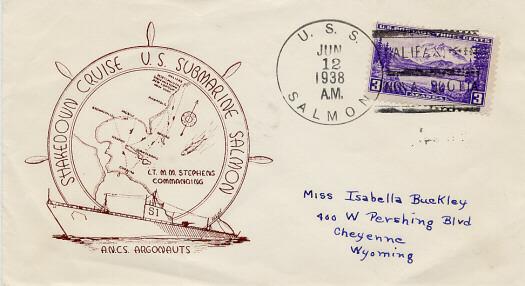 SHAKEDOWN CRUISE U.S. SUBMARINE SALMON
LT. M. M. STEPHENS
COMMANDING
S1
A.N.C.S. ARGONAUTS
U. S. S.
JUN
12
1938
A.M.
SALMON
THREE CENTS
HALIFAX
NOVA SCOTIA
3 3
Miss Isabella Buckley
400 W Pershing Blvd
Cheyenne
Wyoming